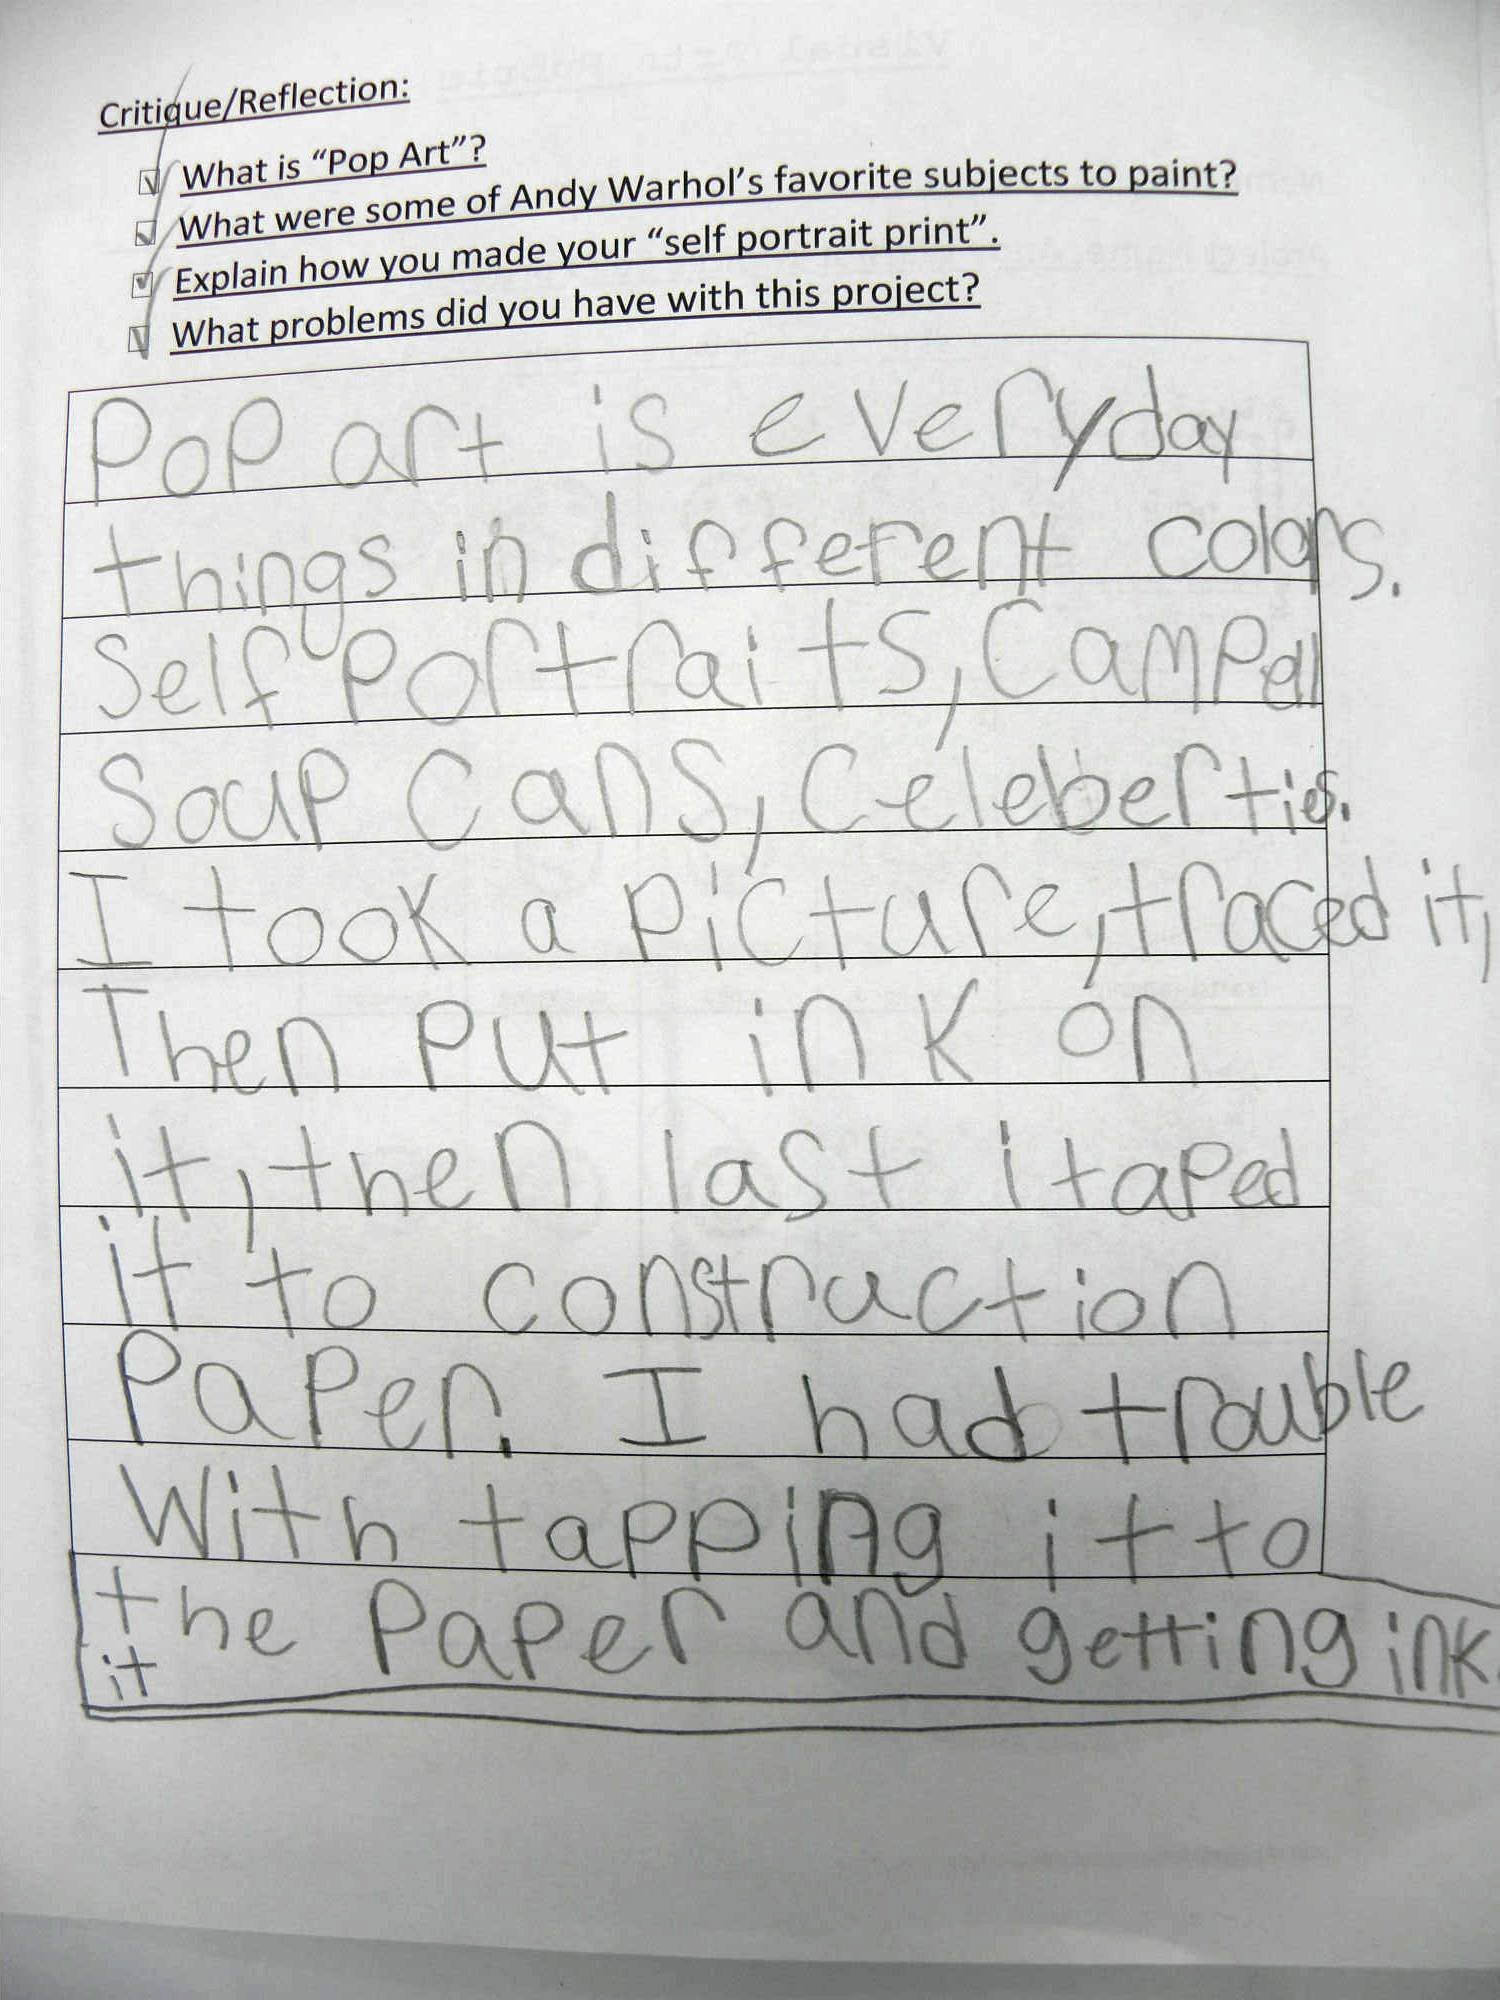 Critique/Reflection:
What is “Pop Art”?
What were some of Andy Warhol’s favorite subjects to paint?
Explain how you made your “self portrait print”.
What problems did you have with this project?
Pop art is everyday
things in different colors.
Self portraits, Campell
Soup cans, Celeberties.
I took a picture, traced it,
Then put ink on
it, then last i taped
it to construction
Paper. I had trouble
With tapping it to
the Paper and getting ink
it